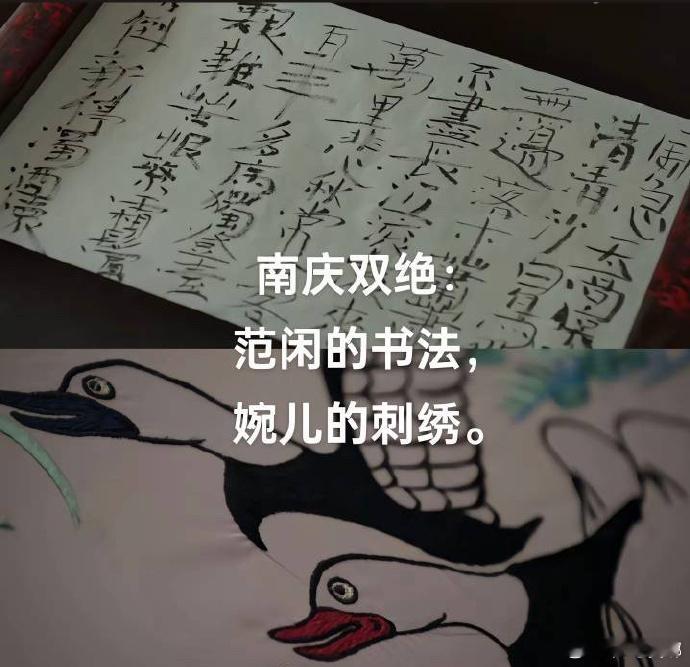 風急天高猿
渚清沙白鳥
無邊落木蕭蕭
不盡長江滾
萬里悲秋常
百年多病獨登臺
艱難苦恨繁霜鬢
倒新停濁酒
南庆双绝：
范闲的书法，
婉儿的刺绣。